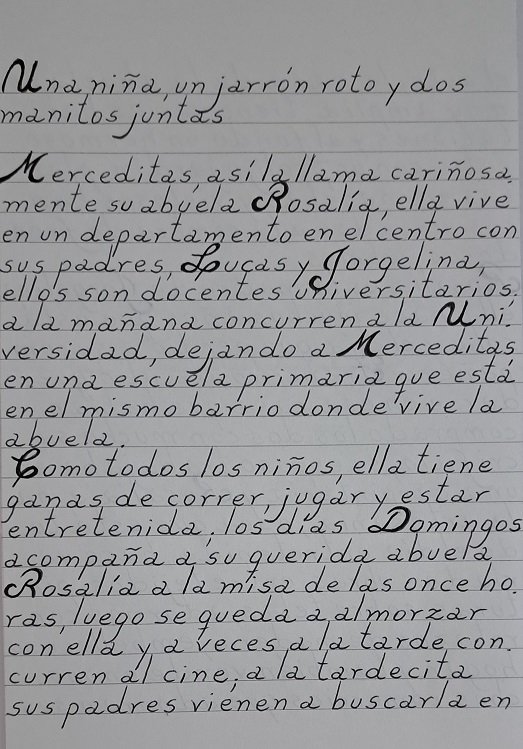 Una niña, un jarrón roto y dos
manitos juntas
Merceditas, así la llama cariñosa.
mente su abuela Rosalía, ella vive
en un departamento en el centro con
sus padres, Lucas y Jorgelina,
ellos son docentes universitarios,
a la mañana concurren a la Uni.
versidad, dejando a Merceditas
en una escuela primaria que está
en el mismo barrio donde vive la
abuela.
Como todos los niños, ella tiene
ganas de correr, jugar y estar
entretenida, los días Domingos
acompaña a su querida abuela
Rosalía a la misa de las once ho.
ras, luego se queda a almorzar
con ella y a veces a la tarde con.
curren al cine, a la tardecita
sus padres vienen a buscarla en